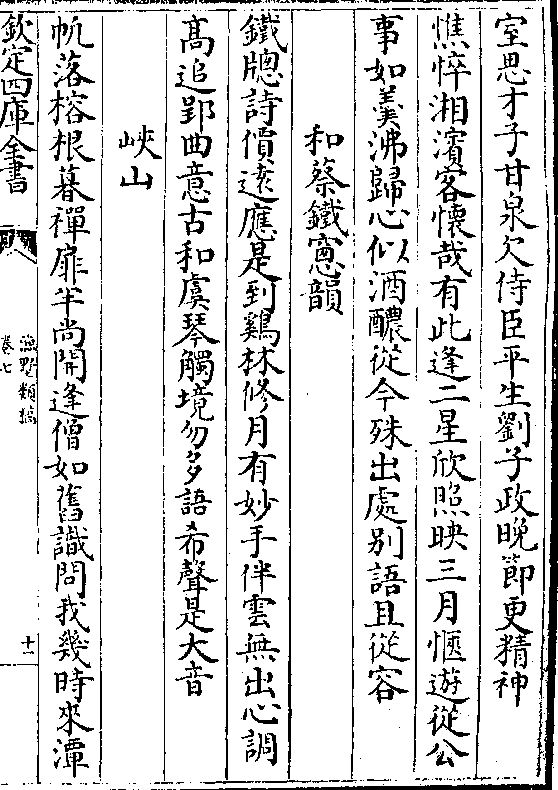 室思才子甘泉欠侍臣平生劉子政晚節更精神
憔悴湘濱客懷哉有此逢二星欣照映三月愜遊從公
事如羮沸歸心似酒醲從今殊出處别語且從容
和蔡鐵窻韻
鐵牕詩價逺應是到鷄林修月有妙手伴雲無出心調
髙追郢曲意古和虞琴觸境勿多語希聲是大音
峽山
帆落榕根暮禪扉半尚開逢僧如舊識問我幾時來潭
欽定四庫全書
漁墅類稿
卷七
十一